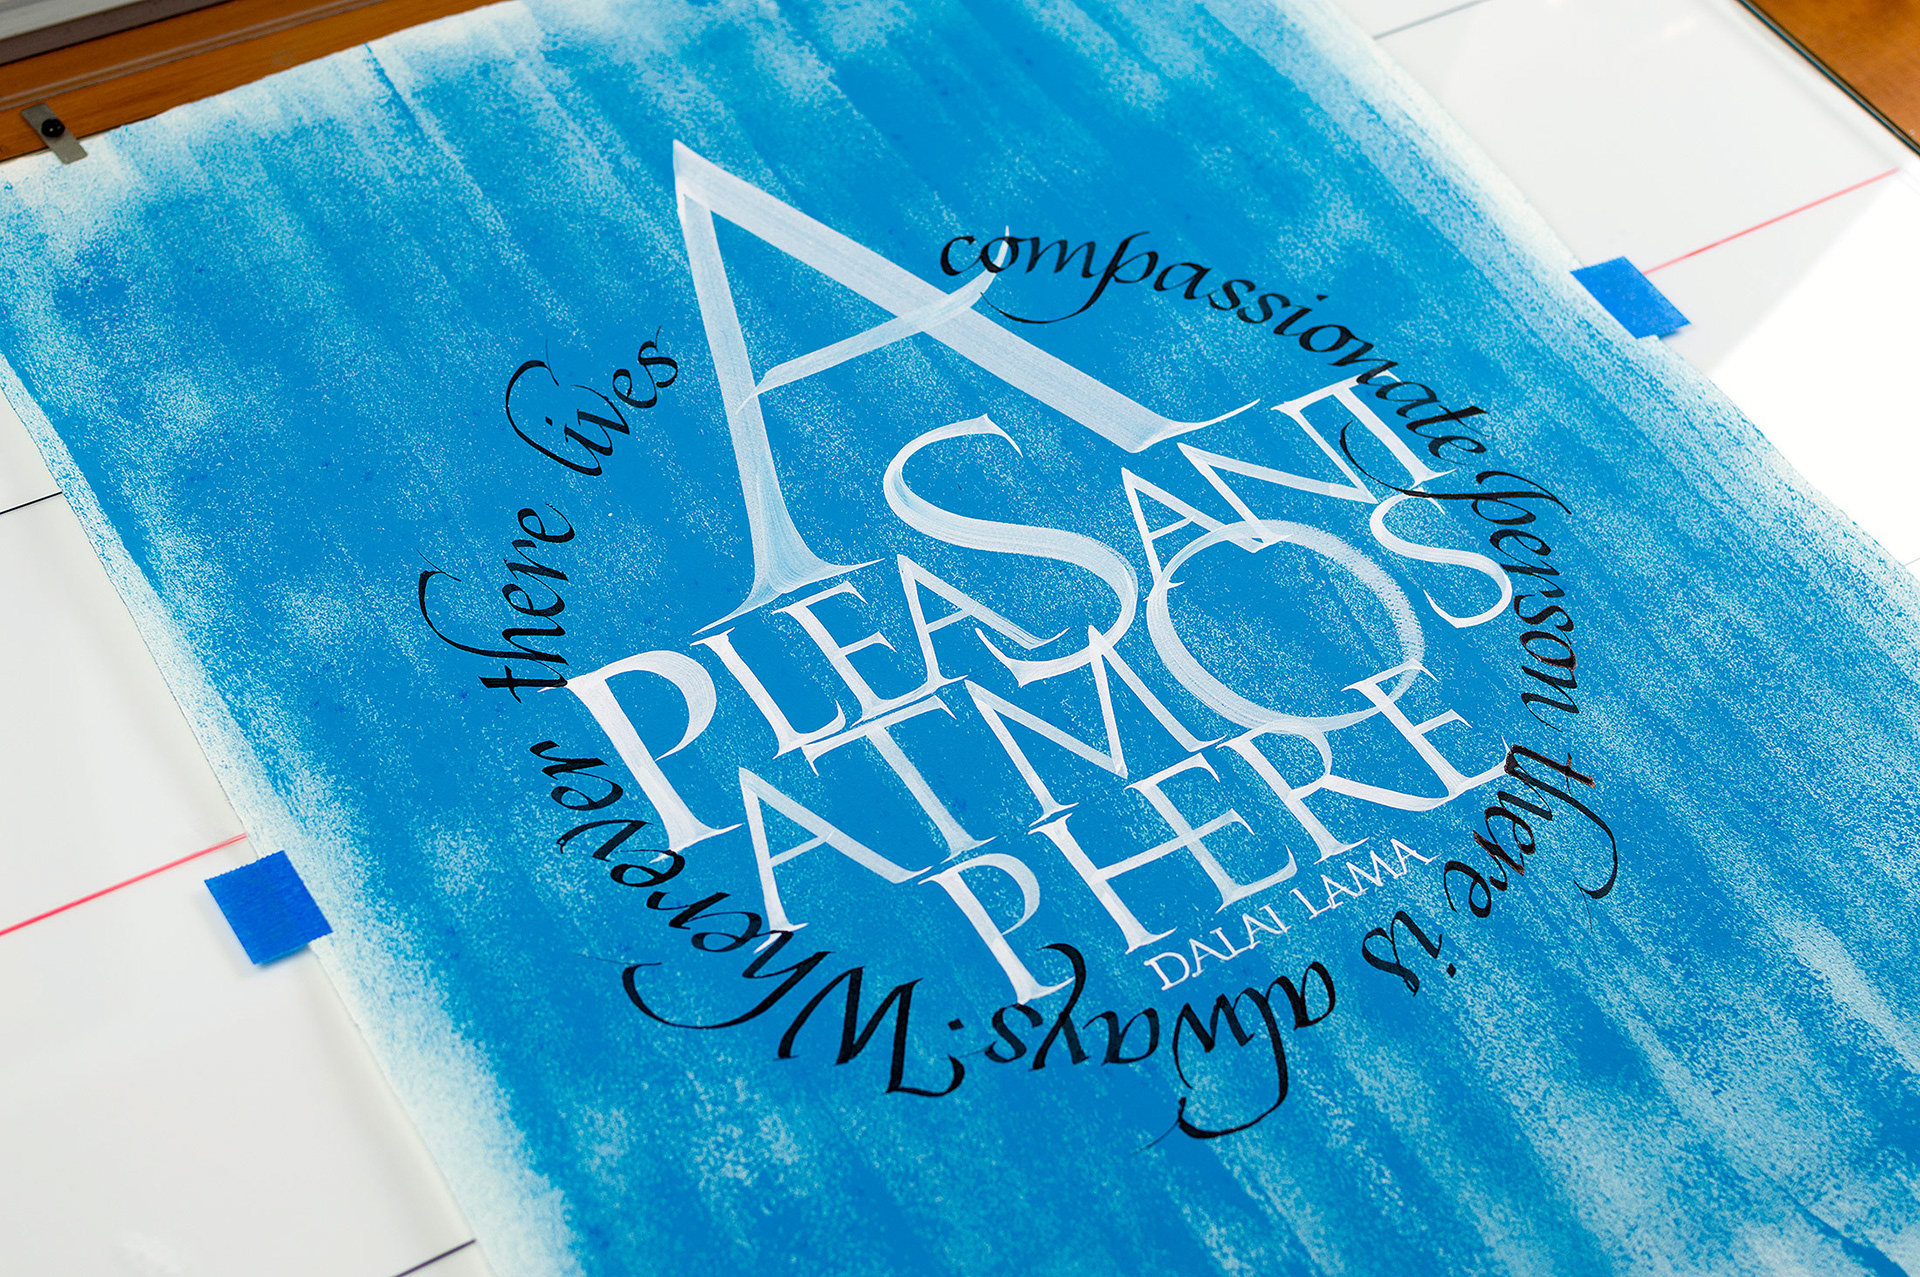 Wherever there lives
A
compassionate person there is always:
PLEASANT
ATMOS
PHERE
DALAI LAMA